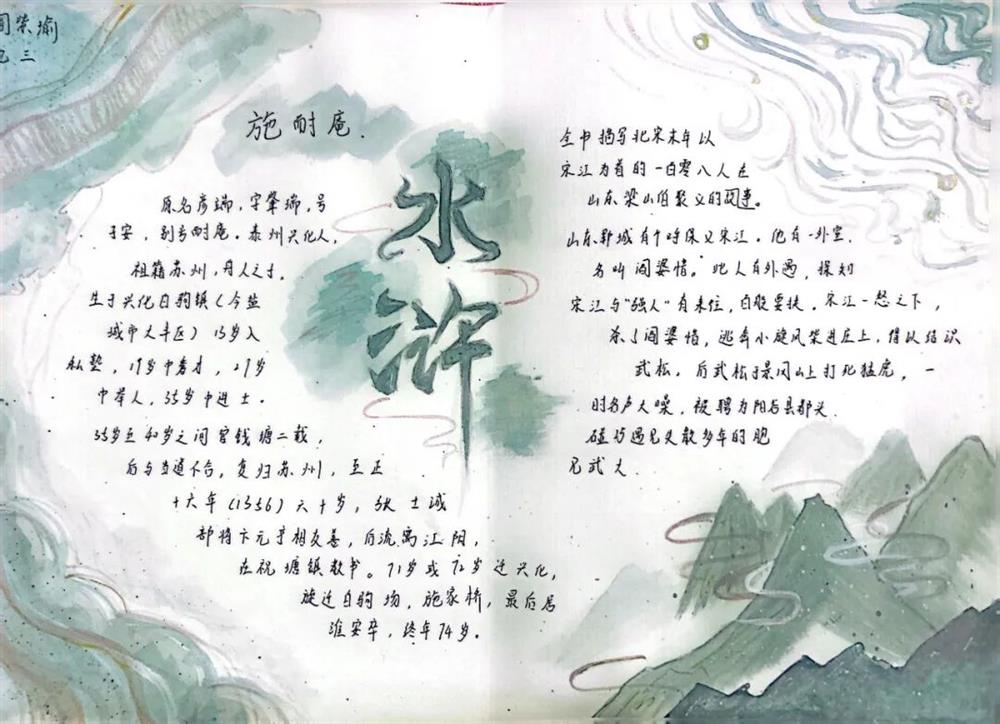 施耐庵.
原名彦端，字肇瑞，号
子安，别号耐庵。泰州兴化人，
祖籍苏州，舟人之子.
生于兴化白驹镇（今盐
城市大丰区）13岁入
私塾，19岁中秀才，29岁
中举人，35岁中进士.
35岁至40岁之间官钱塘二载，
后与当道不合，复归苏州，至正
十六年（1356）六十岁，张士诚
部将卞元亨相交善，后流寓江阴，
在祝塘镇教书。71岁或72岁迁兴化，
旋迁白驹场，施家桥，最后居
淮安卒，终年74岁.
水浒
全书描写北宋末年以
宋江为首的一百零八人在
山东梁山伯聚义的故事。
山东郓城有个呼保义宋江。他有一外室，
名叫阎婆惜。此人有外遇，探知
宋江与"强人"有来往，百般要挟。宋江一怒之下，
杀了阎婆惜，逃奔小旋风柴进庄上，得以结识
武松，后武松于景冈山上打死猛虎，一
时名声大噪，被聘为阳谷县都头.
碰巧遇见失散多年的胞
兄武大.